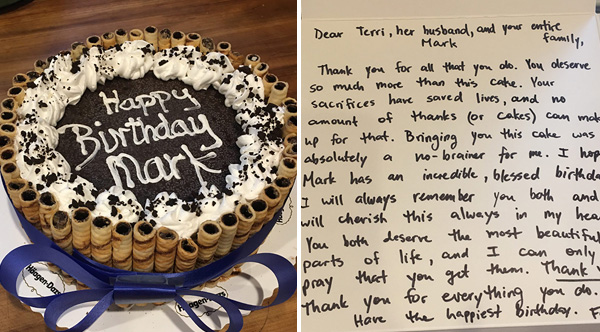 Happy
Birthday
Mark
Häagen-Dazs
Häagen-Dazs
Dear Terri, her husband, and your entire
Mark family,
Thank you for all that you do. You deserve
so much more than this cake. Your
sacrifices have saved lives, and no
amount of thanks (or cakes) can mak
up for that. Bringing you this cake was
absolutely a no-brainer for me. I hop
Mark has an incredible, blessed birthda
I will always remember you both and
will cherish this always in my hea
You both deserve the most beautiful
parts of life, and I can only
pray that you got them. Thank
Thank you for everything you do.
Have the happiest Birthday. F